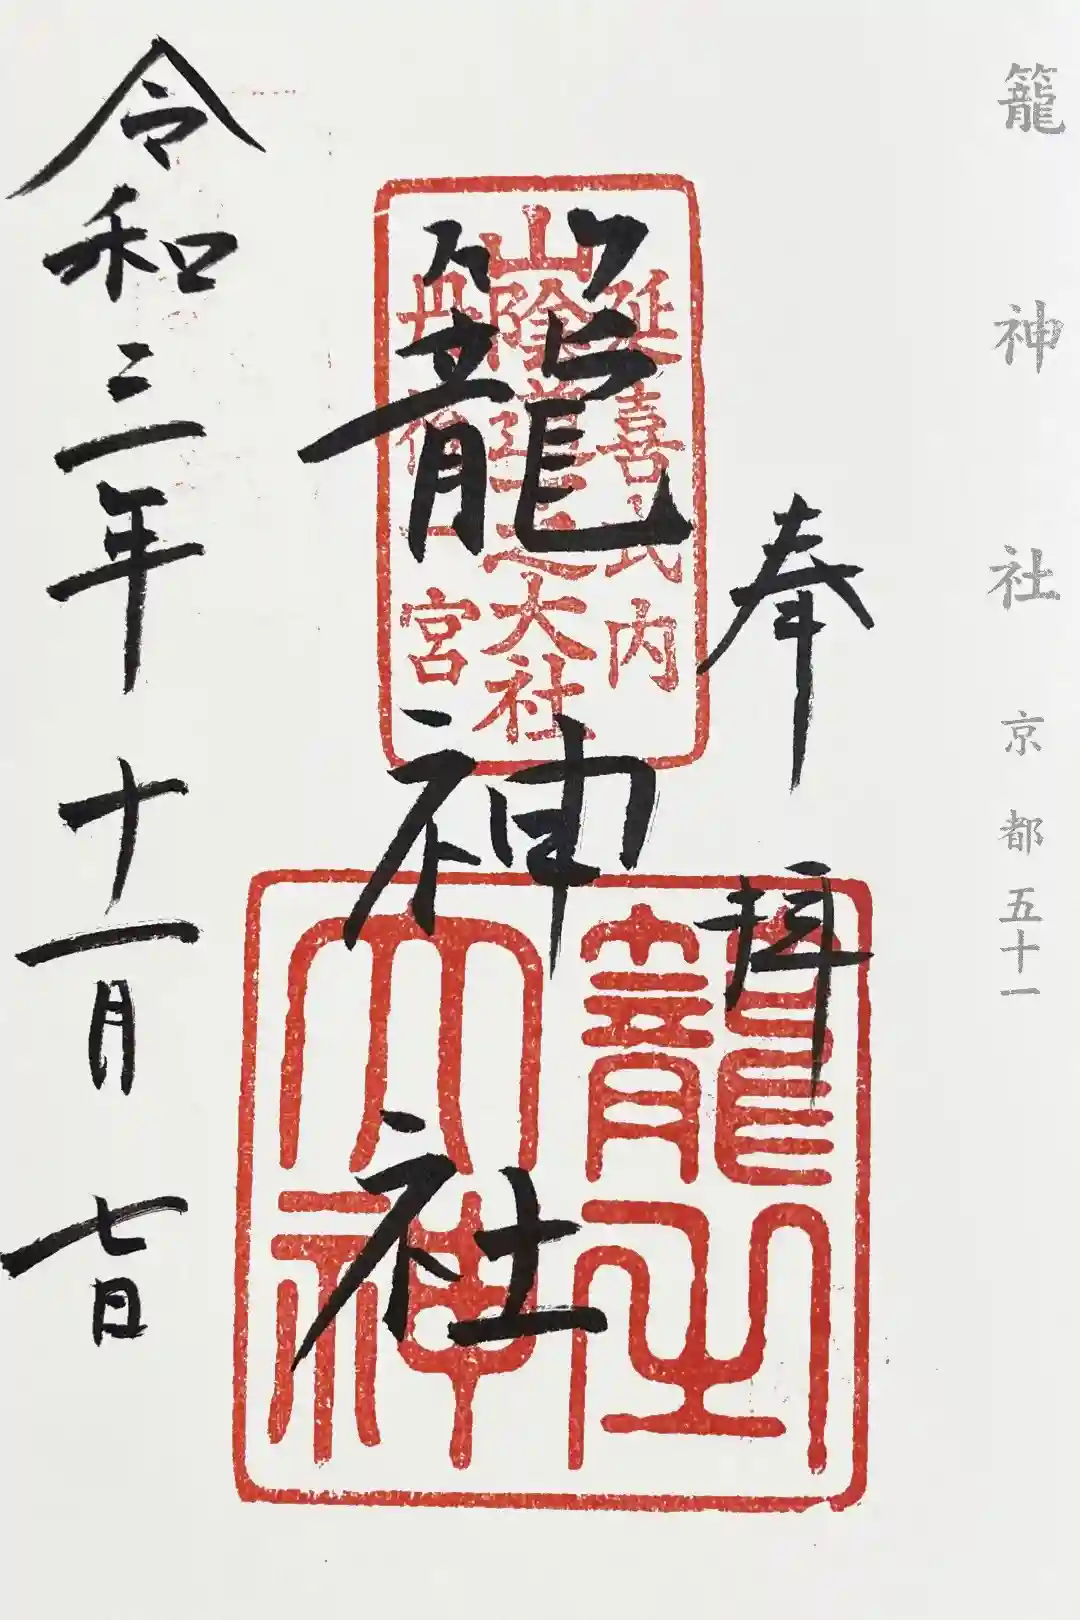 籠神社 京都五十一
奉拝
延喜式内
山陰道之大社
丹後一宮
籠神社
籠之大神
令和三年十一月七日